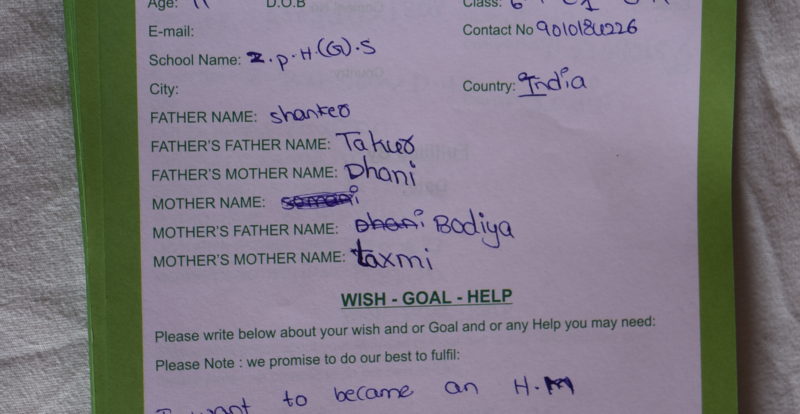 Age: 11 D.O.B Class:
E-mail: Contact No 9010184226
School Name: Z.p.H(G).S
City: Country: India
FATHER NAME: shanker
FATHER'S FATHER NAME: Takur
FATHER'S MOTHER NAME: Dhani
MOTHER NAME:
MOTHER'S FATHER NAME: Dhani Bodiya
MOTHER'S MOTHER NAME: Laxmi
WISH - GOAL - HELP
Please write below about your wish and or Goal and or any Help you may need:
Please Note : we promise to do our best to fulfil:
I want to became an H.M